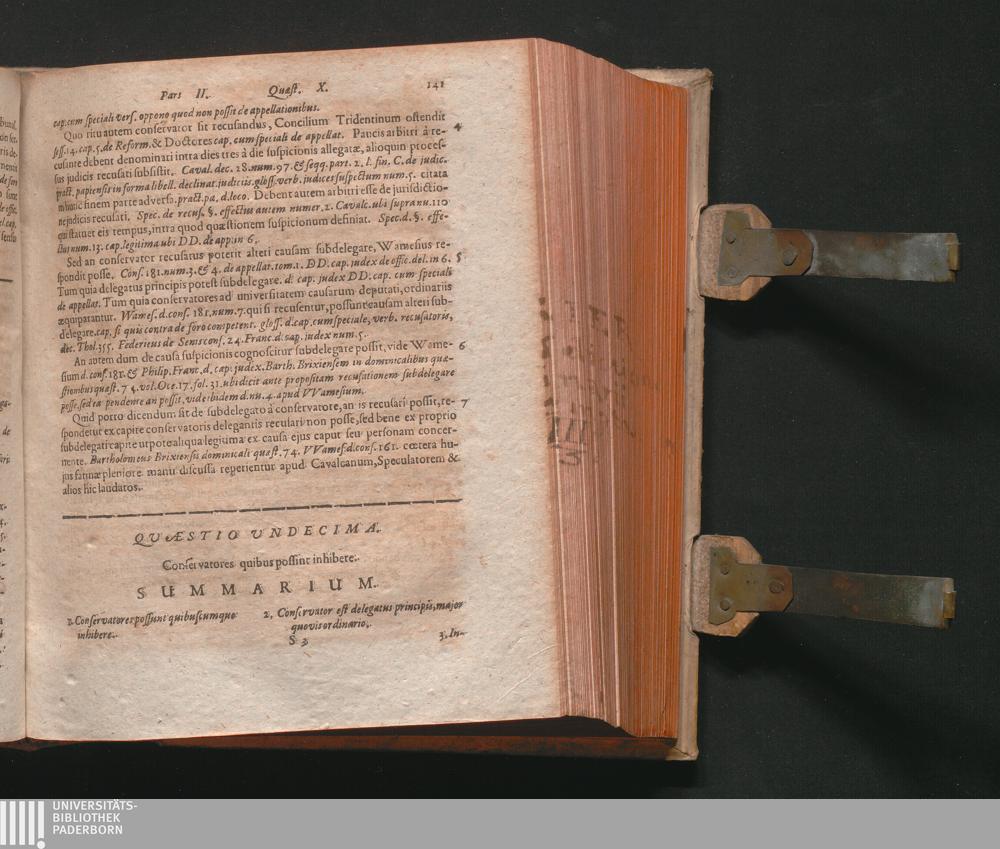 Pars II. Quæst. X. 141
cap. cum speciali vers. oppono quod non possit de appellationibus.
Quo ritu autem conservator sit recusandus, Concilium Tridentinum ostendit 4
sess. 14. cap. 5. de Reform. & Doctores cap. cum speciali de appellat. Paucis arbitri à re-
cusante debent denominari intra dies tres à die suspicionis allegatæ, alioquin proces-
sus judicis recusati subsistit. Caval. dec. 28. num. 97. & seqq. part. 2. l. fin. C. de judic.
pract. papiensis in forma libell. declinat. judiciis. gloss. verb. judicet suspectum num. 5. citata
in hunc finem parte adversa. pract. pa. d. loco. Debent autem arbitri esse de jurisdictio-
ne judicis recusati. Spec. de recus. §. effectus autem numer. 2. Cavalc. ubi supra nu. 110
qui statuet eis tempus, intra quod quæstionem suspicionum definiat. Spec. d. §. effe-
ctus num. 13. cap. legitima ubi DD. de app: in 6.
Sed an conservator recusatus poterit alteri causam subdelegare, Wamesius re-
spondit posse. Cons. 181. num. 3. & 4. de appellat. tom. 1. DD. cap. judex de offic. del. in 6. 5
Tum quia delegatus principis potest subdelegare. d. cap. judex DD. cap. cum speciali
de appellat. Tum quia conservatores ad universitatem causarum deputati, ordinariis
æquiparantur. Wames. d. cons. 181. num. 7. qui si recusentur, possunt causam alteri sub-
delegare. cap. si quis contra de foro competent. gloss. d. cap. cum speciale, verb. recusatoris,
dec. Thol. 355. Federicus de Senis cons. 24. Franc. d. cap. judex num. 5.
An autem dum de causa suspicionis cognoscitur subdelegare possit, vide Wame- 6
sium d. cons. 181. & Philip. Franc. d. cap: judex. Barth. Brixiensem in dominicalibus quæ-
stionibus quæst. 74. vol. Oce. 17. fol. 31. ubi dicit ante propositam recusationem subdelegare
posse, sed ea pendente an possit, vide ibidem d. nu. 4. apud VVamesium.
Quid porro dicendum sit de subdelegato à conservatore, an is recusari possit, re- 7
spondetur ex capite conservatoris delegantis recusari non posse, sed bene ex proprio
subdelegati capite utpote aliqua legitima ex causa ejus caput seu personam concer-
nente. Bartholomeus Brixiensis dominicali quæst. 74. VVames. d. cons. 161. cœtera hu-
jus farinæ pleniore manu discussa reperientur apud Cavalcanum, Speculatorem &
alios hic laudatos.
QUÆSTIO UNDECIMA.
Conservatores quibus possint inhibere.
SUMMARIUM.
1. Conservatores possunt quibuscumque
inhibere.
2. Conservator est delegatus principis, major
quovis ordinario.
S 3 3. In-
UNIVERSITÄTS-
BIBLIOTHEK
PADERBORN